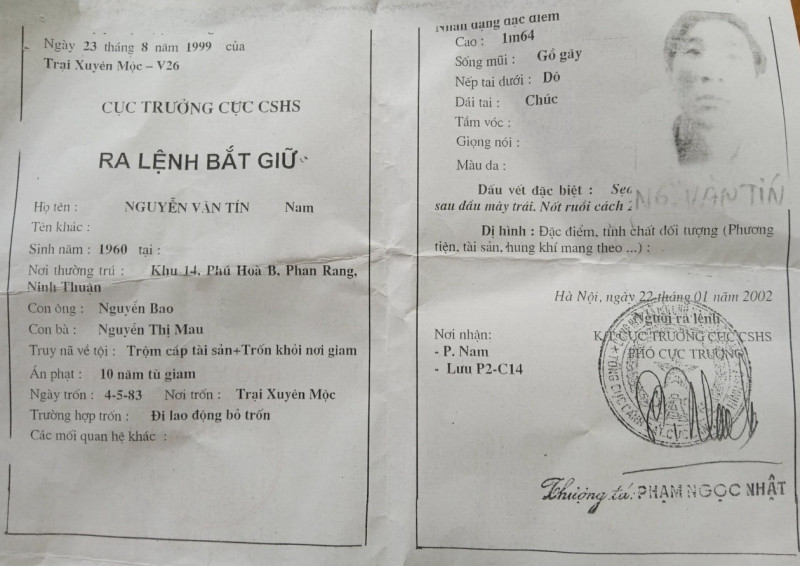 Ngày 23 tháng 8 năm 1999 của
Trại Xuyên Mộc – V26
CỤC TRƯỞNG CỰC CSHS
RA LỆNH BẮT GIỮ
Họ tên : NGUYỄN VĂN TÍN Nam
Tên khác :
Sinh năm : 1960 tại :
Nơi thường trú : Khu 14, Phú Hoà B, Phan Rang,
Ninh Thuận
Con ông : Nguyễn Bao
Con bà : Nguyễn Thị Mau
Truy nã về tội : Trộm cắp tài sản+Trốn khỏi nơi giam
Án phạt : 10 năm tù giam
Ngày trốn : 4-5-83 Nơi trốn : Trại Xuyên Mộc
Trường hợp trốn : Đi lao động bỏ trốn
Các mối quan hệ khác :
Nhân dạng đặc điểm
Cao : 1m64
Sống mũi : Gồ gãy
Nếp tai dưới : Dô
Dái tai : Chúc
Tầm vóc :
Giọng nói :
Màu da :
Dấu vết đặc biệt : Sẹo
sau đầu mày trái. Nốt ruồi cách
Dị hình : Đặc điểm, tính chất đối tượng (Phương
tiện, tài sản, hung khí mang theo ...) :
Hà Nội, ngày 22 tháng 01 năm 2002
Người ra lệnh
K/T CỤC TRƯỞNG CỤC CSHS
PHÓ CỤC TRƯỞNG
Nơi nhận:
- P. Nam
- Lưu P2-C14
Thượng tá: PHẠM NGỌC NHẬT